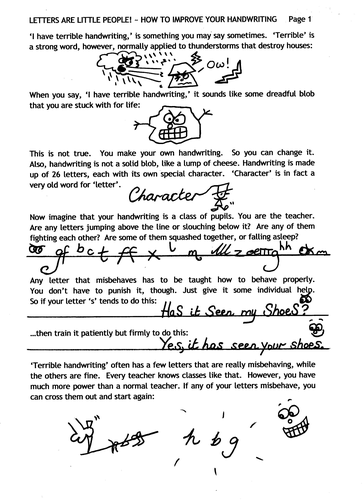 LETTERS ARE LITTLE PEOPLE! – HOW TO IMPROVE YOUR HANDWRITING Page 1
‘I have terrible handwriting,’ is something you may say sometimes. ‘Terrible’ is
a strong word, however, normally applied to thunderstorms that destroy houses:
OW!
When you say, ‘I have terrible handwriting,’ it sounds like some dreadful blob
that you are stuck with for life:
This is not true. You make your own handwriting. So you can change it.
Also, handwriting is not a solid blob, like a lump of cheese. Handwriting is made
up of 26 letters, each with its own special character. ‘Character’ is in fact a
very old word for ‘letter’.
Character
Now imagine that your handwriting is a class of pupils. You are the teacher.
Are any letters jumping above the line or slouching below it? Are any of them
fighting each other? Are some of them squashed together, or falling asleep?
Any letter that misbehaves has to be taught how to behave properly.
You don’t have to punish it, though. Just give it some individual help.
So if your letter ‘s’ tends to do this:
Has it Seen my Shoes?
…then train it patiently but firmly to do this:
Yes, it has seen your shoes.
‘Terrible handwriting’ often has a few letters that are really misbehaving, while
the others are fine. Every teacher knows classes like that. However, you have
much more power than a normal teacher. If any of your letters misbehave, you
can cross them out and start again:
h b g